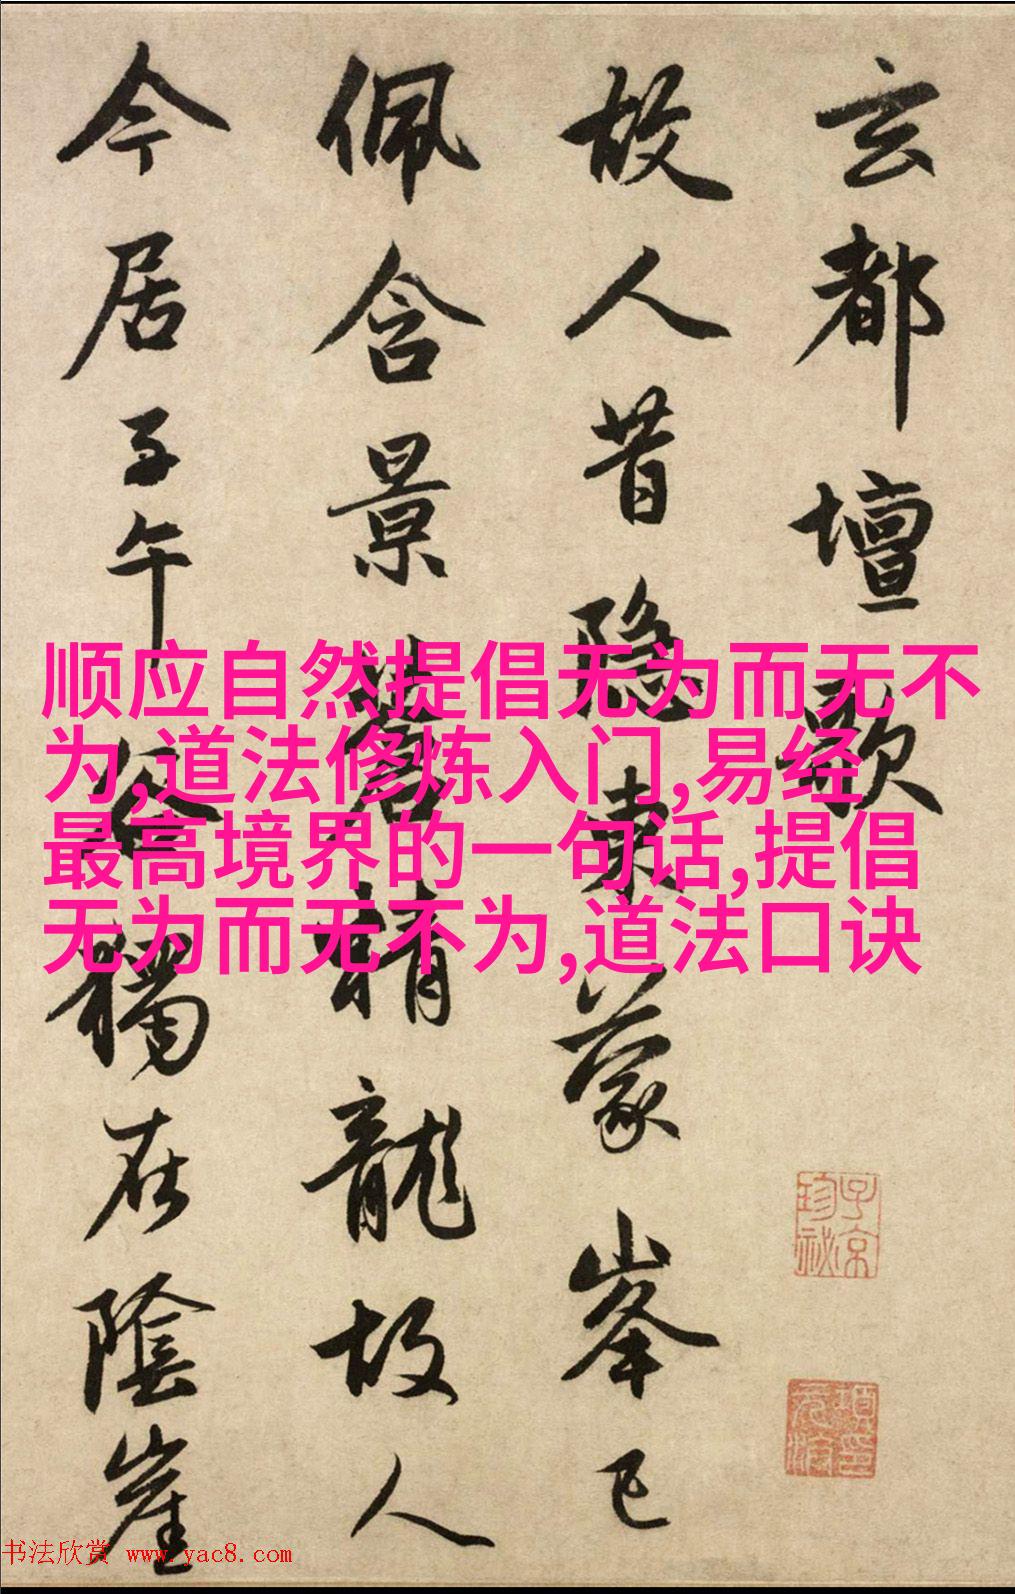 玄都壇歌
故人昔隐東蒙峯已
佩含景蒼精龍故人
今居子午谷獨在陰崖
顺应自然提倡无为而无不
为,道法修炼入门,易经
最高境界的一句话,提倡
无为而无不为,道法口诀
子京珍祕
书法欣赏 www.yac8.com